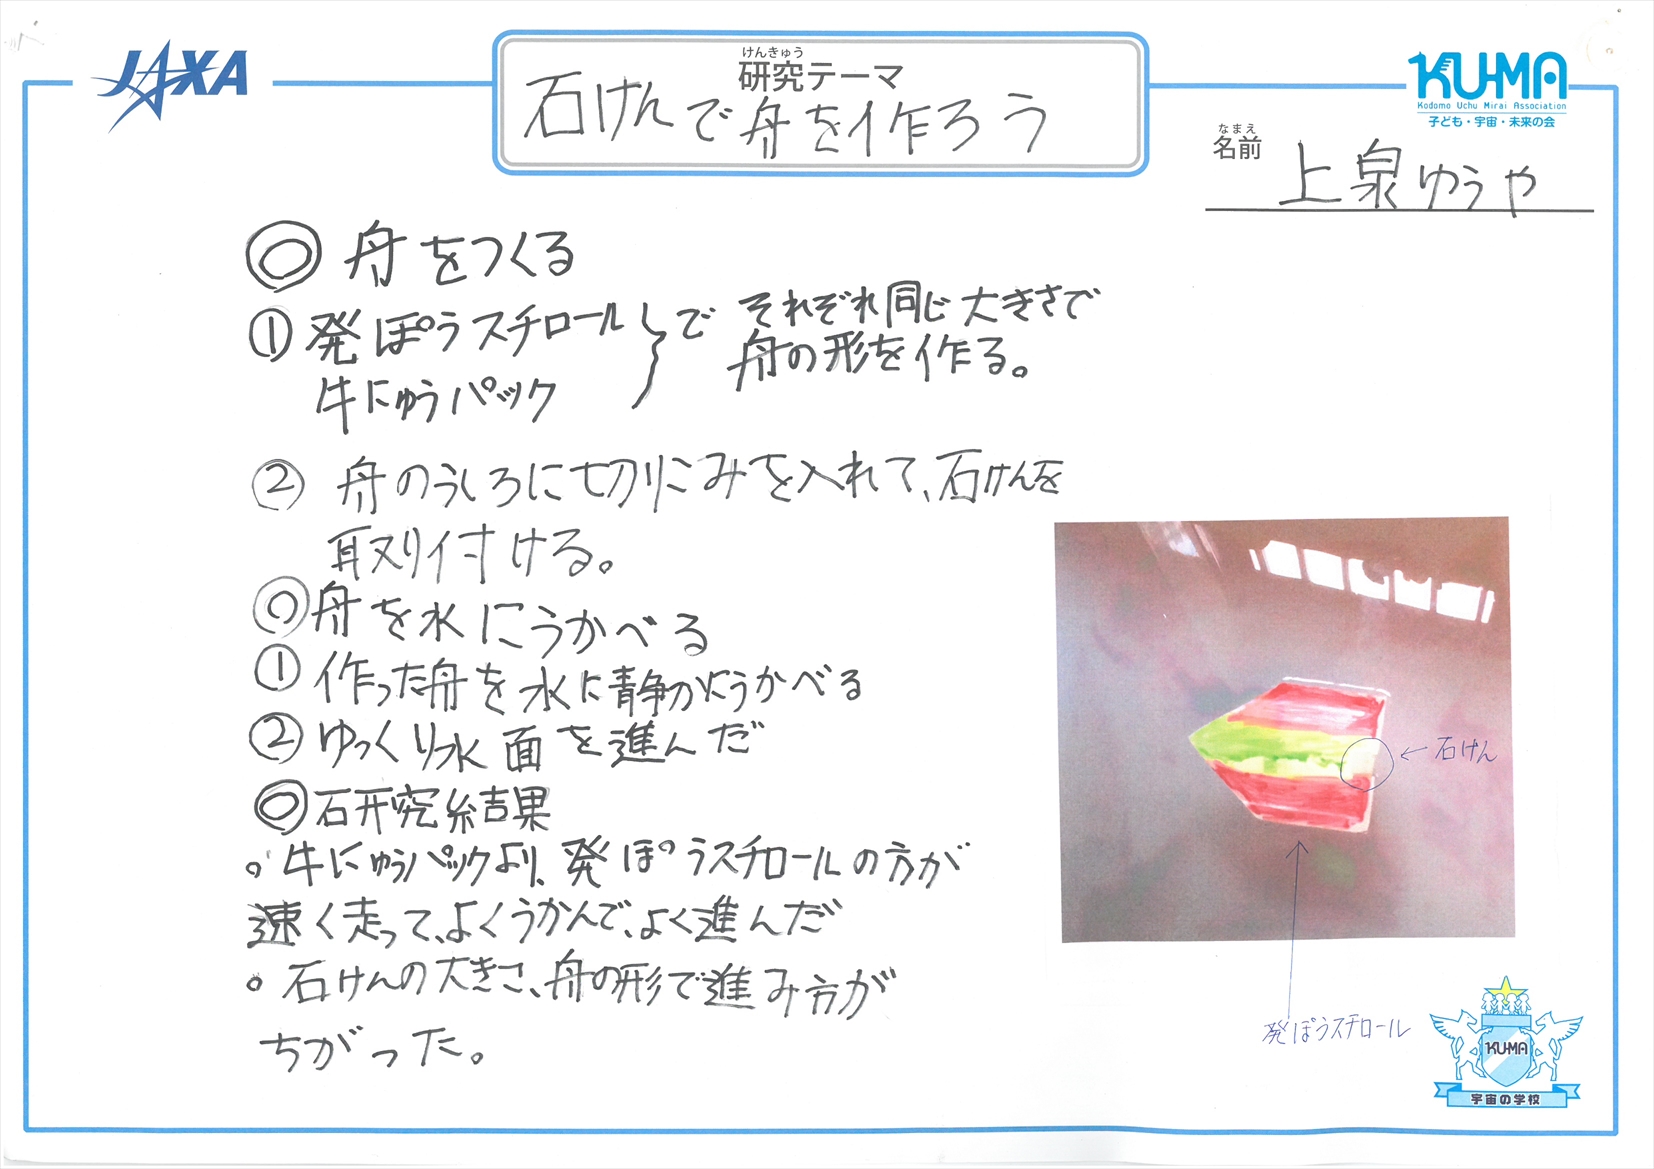 JAXA
けんきゅう
研究テーマ
石けんで舟を作ろう
KU-MA
Kodomo Uchu Mirai Association
子ども・宇宙・未来の会
なまえ
名前
上泉ゆうや
◎ 舟をつくる
① 発ぽうスチロール
牛にゅうパック
で それぞれ同じ大きさで
舟の形を作る。
② 舟のうしろに切りこみを入れて、石けんを
取り付ける。
◎舟を水にうかべる
① 作った舟を水に静かにうかべる
② ゆっくり水面を進んだ
◎研究結果
。牛にゅうパックより、発ぽうスチロールの方が
速く走って、よくうかんで、よく進んだ
。石けんの大きさ、舟の形で進み方が
ちがった。
←石けん
発ぽうスチロール
KU-MA
宇宙の学校